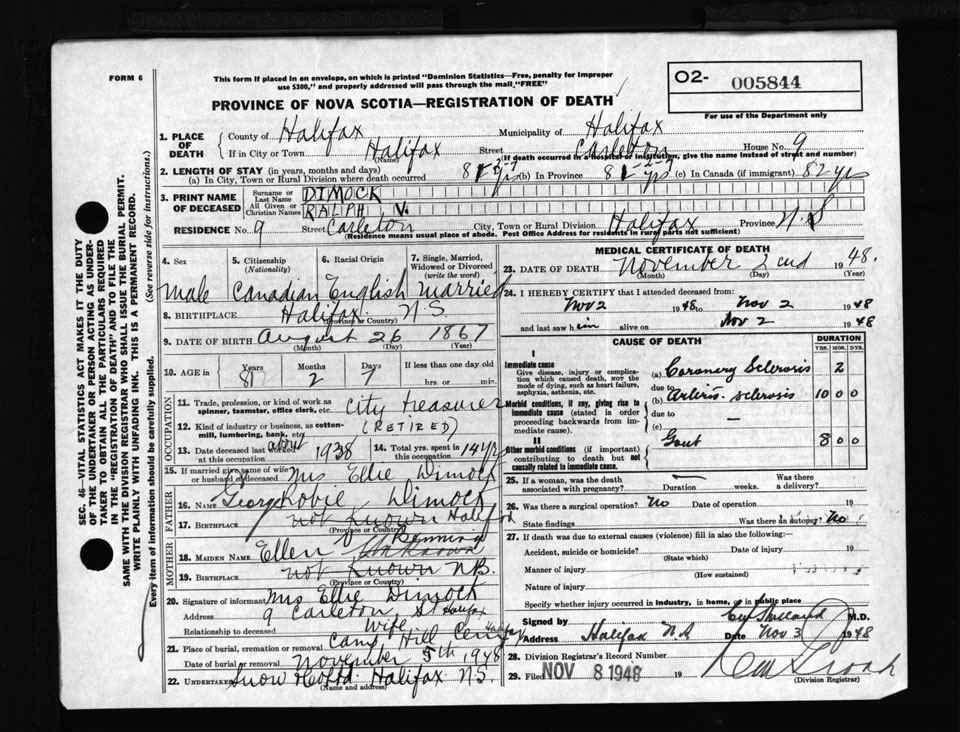 FORM 6
This form if placed in an envelope, on which is printed "Dominion Statistics—Free, penalty for improper
use $300," and properly addressed will pass through the mail "FREE"
O2- 005844
For use of the Department only
PROVINCE OF NOVA SCOTIA—REGISTRATION OF DEATH
1. PLACE OF DEATH
County of Halifax Municipality of Halifax
If in City or Town Halifax (Name) Street Carleton House No. 9
(If death occurred in a hospital or institution, give the name instead of street and number)
2. LENGTH OF STAY (in years, months and days)
(a) In City, Town or Rural Division where death occurred 81-2-7 yrs (b) In Province 81-2-7 yrs (c) In Canada (if immigrant) 82 yrs
3. PRINT NAME OF DECEASED
Surname or Last Name DIMOCK
All Given or Christian Names RALPH V.
RESIDENCE No. 9 Street Carleton City, Town or Rural Division Halifax Province N.S
(Residence means usual place of abode. Post Office Address for residents in rural parts not sufficient)
4. Sex 5. Citizenship (Nationality) 6. Racial Origin 7. Single, Married, Widowed or Divorced (write the word)
Male Canadian English Married
8. BIRTHPLACE Halifax N.S.
(Province or Country)
9. DATE OF BIRTH August 26 1867
(Month) (Day) (Year)
10. AGE in Years Months Days If less than one day old
81 2 7 hrs. or min.
OCCUPATION
11. Trade, profession, or kind of work as spinner, teamster, office clerk, etc. City Treasurer
12. Kind of industry or business, as cotton-mill, lumbering, bank, etc. (RETIRED)
13. Date deceased last worked at this occupation about 1938 14. Total yrs. spent in this occupation 14 yrs
15. If married give name of wife or husband of deceased Mrs Ellie Dimock
FATHER
16. NAME George Dimock
17. BIRTHPLACE not Known Halifax
(Province or Country)
MOTHER
18. MAIDEN NAME Ellen
19. BIRTHPLACE not Known N.B.
(Province or Country)
20. Signature of informant Mrs Ellie Dimock
Address 9 Carleton St Halifax
Relationship to deceased Wife
21. Place of burial, cremation or removal Camp Hill Cem Halifax
Date of burial or removal November 5th 1948
22. Undertaker Snow Halifax N.S.
(Name and address)
MEDICAL CERTIFICATE OF DEATH
23. DATE OF DEATH November 2nd 1948.
(Month) (Day) (Year)
24. I HEREBY CERTIFY that I attended deceased from:
Nov 2 1948 to Nov 2 1948
and last saw him alive on Nov 2 1948
CAUSE OF DEATH DURATION
YRS. MOS. DYS.
I
Immediate cause
Give disease, injury or complication which caused death, NOT the mode of dying, such as heart failure, asphyxia, asthenia, etc.
(a) Coronary Sclerosis 2
due to
Morbid conditions, if any, giving rise to immediate cause (stated in order proceeding backwards from immediate cause).
(b) Arterio-sclerosis 10 0 0
due to
(c) —
II
Other morbid conditions (if important) contributing to death but not causally related to immediate cause.
Gout 8 0 0
25. If a woman, was the death associated with pregnancy? Duration weeks. Was there a delivery?
26. Was there a surgical operation? No Date of operation 19
State findings Was there an autopsy? No
27. If death was due to external causes (violence) fill in also the following:—
Accident, suicide or homicide? (State which) Date of injury 19
Manner of injury (How sustained)
Nature of injury
Specify whether injury occurred in industry, in home, or in public place
Signed by M.D.
Address Halifax N.S. Date Nov 3 1948
28. Division Registrar's Record Number
29. Filed NOV 8 1948 19
(Division Registrar)
SEC. 46—VITAL STATISTICS ACT MAKES IT THE DUTY
OF THE UNDERTAKER OR PERSON ACTING AS UNDERTAKER
TO OBTAIN ALL THE PARTICULARS REQUIRED
IN THE "REGISTRATION OF DEATH" AND TO FILE THE
SAME WITH THE DIVISION REGISTRAR WHO SHALL ISSUE THE BURIAL PERMIT.
WRITE PLAINLY WITH UNFADING INK. THIS IS A PERMANENT RECORD.
Every item of information should be carefully supplied. (See reverse side for instructions.)